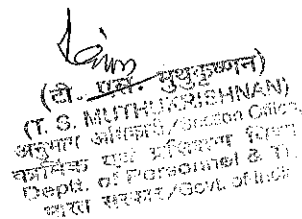 (टी. एस. मुथुकृष्णन)
(T. S. MUTHUKRISHNAN)
अनुभाग अधिकारी/Section Officer
कार्मिक एवं प्रशिक्षण विभाग
Deptt. of Personnel & Trg.
भारत सरकार/Govt. of India